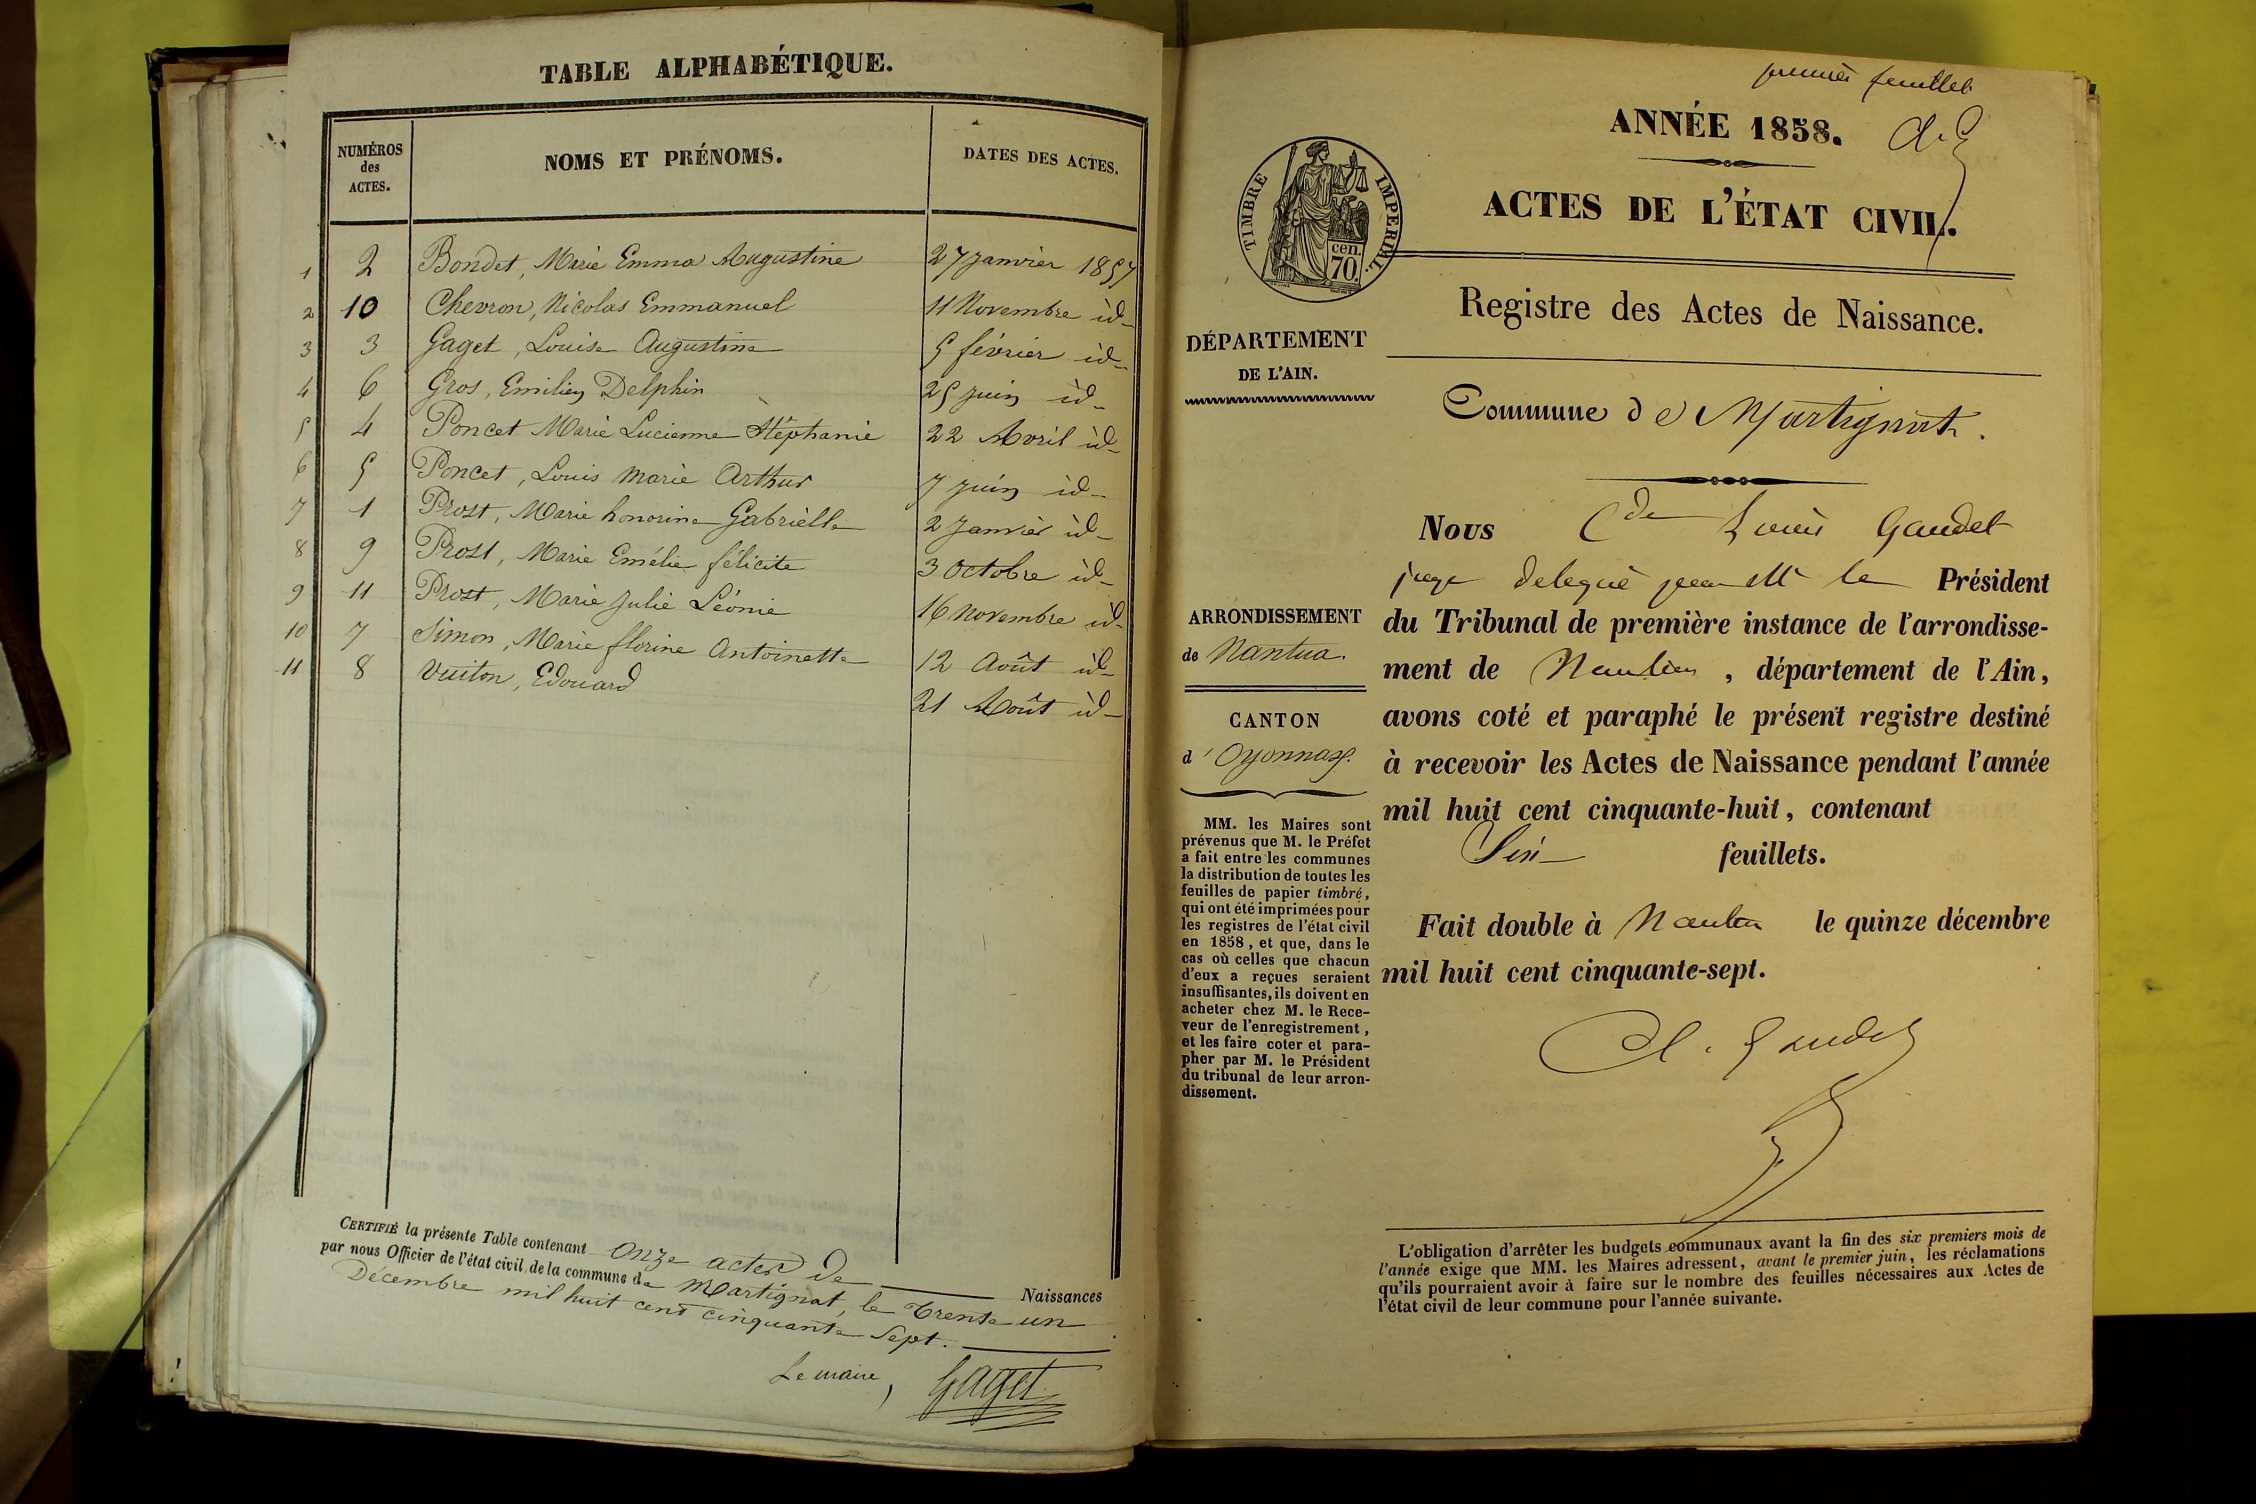 TABLE ALPHABÉTIQUE.
NUMÉROS
des
ACTES.
NOMS ET PRÉNOMS.
DATES DES ACTES.
1 2 Bondet, Marie Emma Augustine 27 janvier 1857
2 10 Chevron, Nicolas Emmanuel 11 Novembre id
3 3 Gaget, Louise Augustine 5 février id
4 6 Gros, Emilien Delphin 25 juin id
5 4 Poncet Marie Lucienne Stéphanie 22 Avril id
6 5 Poncet, Louis Marie Arthur 7 juin id
7 1 Prost, Marie honorine Gabrielle 2 Janvier id
8 9 Prost, Marie Emélie félicite 3 Octobre id
9 11 Prost, Marie Julie Léonie 16 Novembre id
10 7 Simon, Marie florine Antoinette 12 Août id
11 8 Vuiton, Edouard 21 Août id
CERTIFIÉ la présente Table contenant Onze actes de Naissances
par nous Officier de l'état civil de la commune de Martignat, le trente un
Décembre mil huit cent cinquante Sept.
Le maire, Gaget
premier feuillet
ANNÉE 1858.
ACTES DE L'ÉTAT CIVIL.
TIMBRE IMPERIAL.
cen.
70.
Registre des Actes de Naissance.
DÉPARTEMENT
DE L'AIN.
Commune de Martignat.
ARRONDISSEMENT
de Nantua.
CANTON
d'Oyonnax.
MM. les Maires sont
prévenus que M. le Préfet
a fait entre les communes
la distribution de toutes les
feuilles de papier timbré,
qui ont été imprimées pour
les registres de l'état civil
en 1858, et que, dans le
cas où celles que chacun
d'eux a reçues seraient
insuffisantes, ils doivent en
acheter chez M. le Rece-
veur de l'enregistrement,
et les faire coter et para-
pher par M. le Président
du tribunal de leur arron-
dissement.
Nous Cde Louis Gaudet
juge delegué par Mr le Président
du Tribunal de première instance de l'arrondisse-
ment de Nantua, département de l'Ain,
avons coté et paraphé le présent registre destiné
à recevoir les Actes de Naissance pendant l'année
mil huit cent cinquante-huit, contenant
Six feuillets.
Fait double à Nantua le quinze décembre
mil huit cent cinquante-sept.
Gaudet
L'obligation d'arrêter les budgets communaux avant la fin des six premiers mois de
l'année exige que MM. les Maires adressent, avant le premier juin, les réclamations
qu'ils pourraient avoir à faire sur le nombre des feuilles nécessaires aux Actes de
l'état civil de leur commune pour l'année suivante.